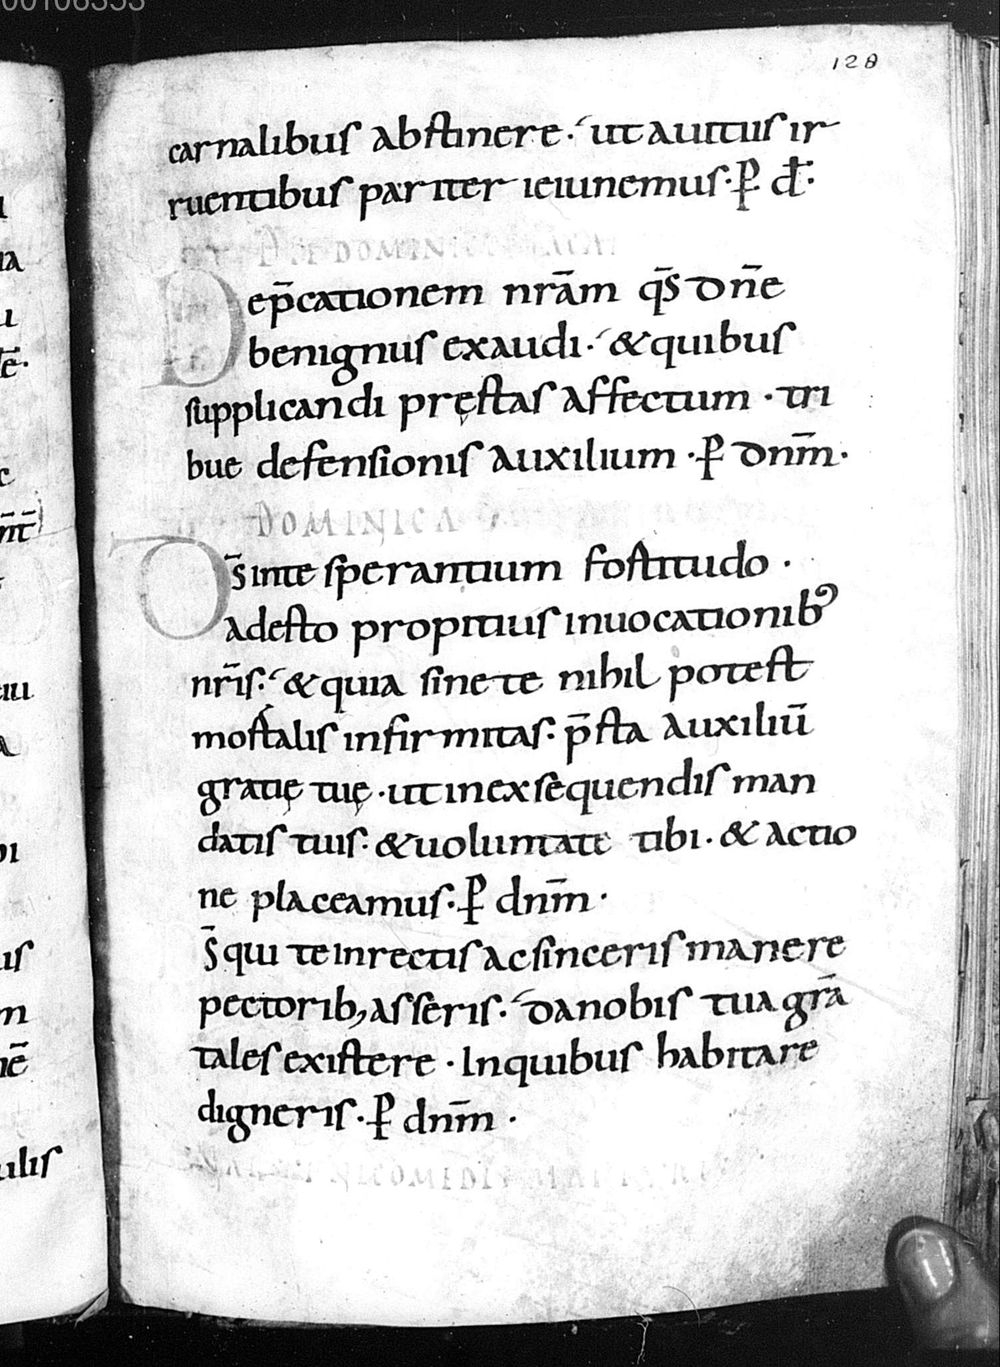 00106353
128
carnalibus abstinere · ut a uitiis ir
ruentibus pariter ieiunemus · P̄ d̄:
DIE DOMINICO
Dep̄cationem nr̄am qs̄ dn̄e
benignus exaudi · & quibus
supplicandi pręstas affectum · tri
bue defensionis auxilium · P̄ dnm̄ ·
DOMINICA
Ds̄ in te sperantium fortitudo ·
adesto propitius inuocationib⁹
nr̄is · & quia sine te nihil potest
mortalis infirmitas · p̄sta auxiliū
gratię tuę · ut in exsequendis man
datis tuis · & uoluntate tibi · & actio
ne placeamus · P̄ dnm̄ ·
Ds̄ qui te in rectis ac sinceris manere
pectorib, asseris · da nobis tua gr̄a
tales existere · In quibus habitare
digneris · P̄ dnm̄ ·
NICOMEDIS MARTYRIS